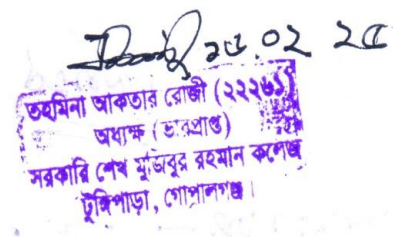 ২৫.০২ ২৫
তহমিনা আকতার রোজী (২২২৬১)
অধ্যক্ষ (ভারপ্রাপ্ত)
সরকারি শেখ মুজিবুর রহমান কলেজ
টুঙ্গিপাড়া, গোপালগঞ্জ।